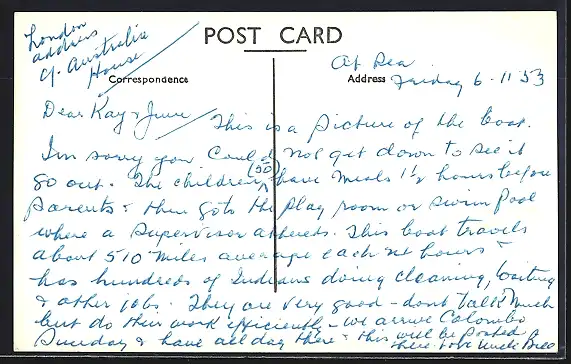 London
address
c/- Australia
House
POST CARD
Correspondence
Address
At Sea
Friday 6.11.53
Dear Kay & June
This is a picture of the boat.
I'm sorry you could not get down to see it
go out. The children (50) have meals 1½ hours before
parents & then go to the play room or swim pool
where a supervisor attends. This boat travels
about 510 miles average each 24 hours &
has hundreds of Indians doing cleaning, waiting
& other jobs. They are very good - dont talk much
but do their work efficiently - we arrive Colombo
Sunday & have all day there & this will be posted
there. Love Uncle Bill